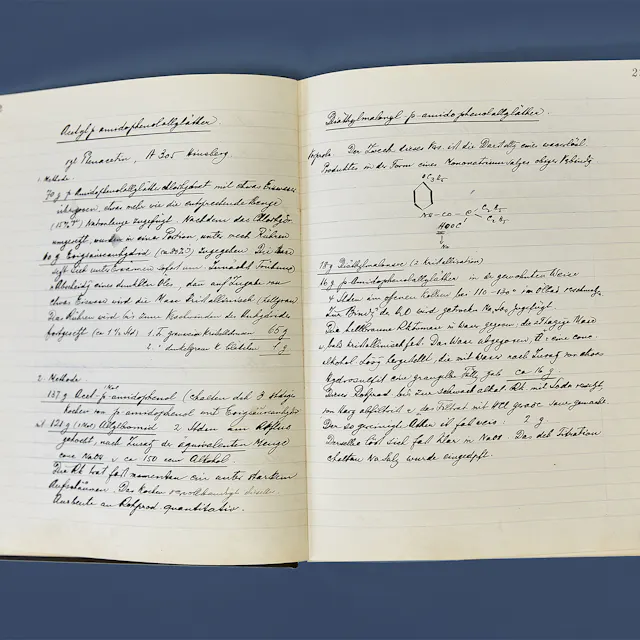 Acetyl p amidophenolallyläther.
vgl Phenacetin, A 305 Kinsberg
1. Methode.
70 g p Amidophenolallyläther chlorhydrat mit etwas Eiswasser
übergossen, etwas mehr wie die entsprechende Menge
(15%) Natronlauge zugefügt. Nachdem das
umgesetzt, wurden in eine Portion, unter Rühren
60 g Essigsäureanhydrid (ca 80%) zugegeben. Die Base
sofort um. Zunächst Trübung
u Abscheidg eines dunklen Öles, dann auf Zugabe von
etwas Eiswasser wird die Masse kristallinisch (hellgrau
Das Rühren wird bis zum Verschwinden des Anhydrids
fortgesetzt (ca 1½ Std) 1. F. grauweisse Kriställchen 65 g
2. " dunkelgrau " Blättchen 1 g
2. Methode
137 g Acet-p-amidophenol (erhalten deh 3 stdges
kochen von p amidophenol mit Essigsäureanhydrid
mit 121 g (1 Mol) Allylbromid 2 Stden am Rkflus
gekocht, nach Zusatz der äquivalenten Menge
conc NaOH u ca 150 ccm Alkohol.
Die Rk trat fast momentan ein unter starkem
Aufschäumen. Das Kochen
Ausbeute an Rohprod. quantitativ.
2
Diäthylmalonyl-p-amidophenolallyläther.
Der Zweck dieses Vers. ist die Darstellg eines wasserlösl.
Produktes in der Form eines Mononatriumsalzes obiger Verbindg
OC₃H₅
NH - CO - C
C₂H₅
C₂H₅
HOOC
Na
18 g Diäthylmalonsre (2 x kristallisation)
16 g p-Amidophenolallyläther in der gewohnten Weise
4 Stden am offenen Kolben bis 110-120° im Ölbad
Zum Bindg des H₂O wird getrockn Na₂SO₄ zugefügt.
Die hellbraune Rk Masse in Wasser gegossen, die
bald kristallinisch fest. Das Wasser abgegossen, u. eine conc.
alkohol Lösg hergestellt, die mit Wasser nach Zusatz von etwas
hydrosulfit eine grangelbe Fällg gab ca 16 g
Dieses Rohprod bis zur schwach alkal. Rk mit Soda versetzt,
von Harz abfiltriert u. das Filtrat mit HCl gerade sauer gemacht.
Der so gereinigte Äther ist fast weiss: 2 g
Derselbe löst sich fast klar in NaOH. Das deh Titration
erhaltene Na Salz wurde eingedpft.